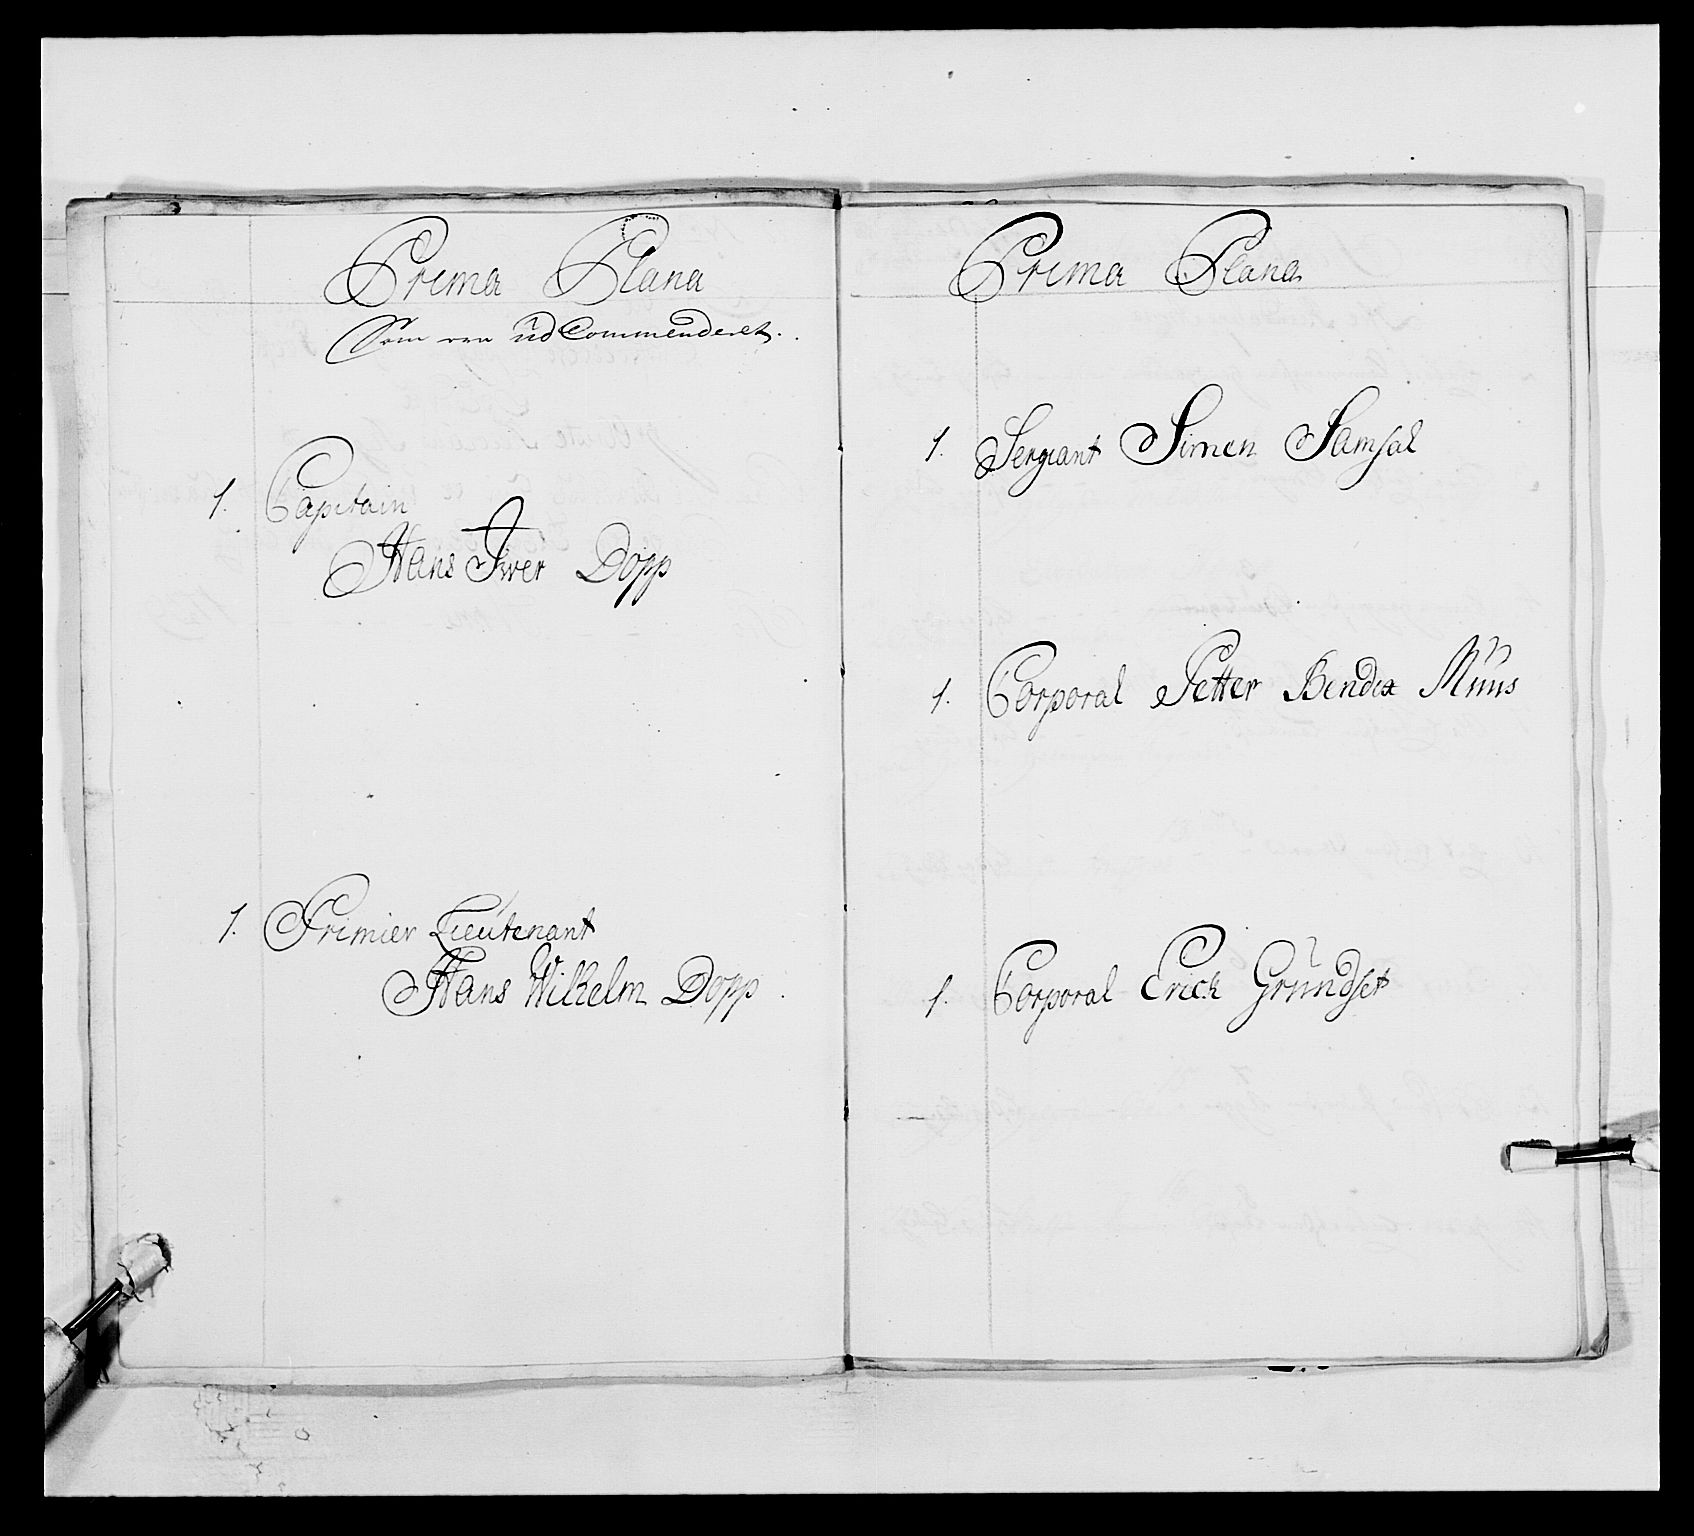 Prima Plana
Som era ud Commenderet.
1. Capitain
Hans Iwer Dopp
1. Primier Lieutenant
Hans Wilhelm Dopp
Prima Plana
1. Sergiant Simen Samsal
1. Corporal Petter Bendix Muus
1. Corporal Erich Grundset